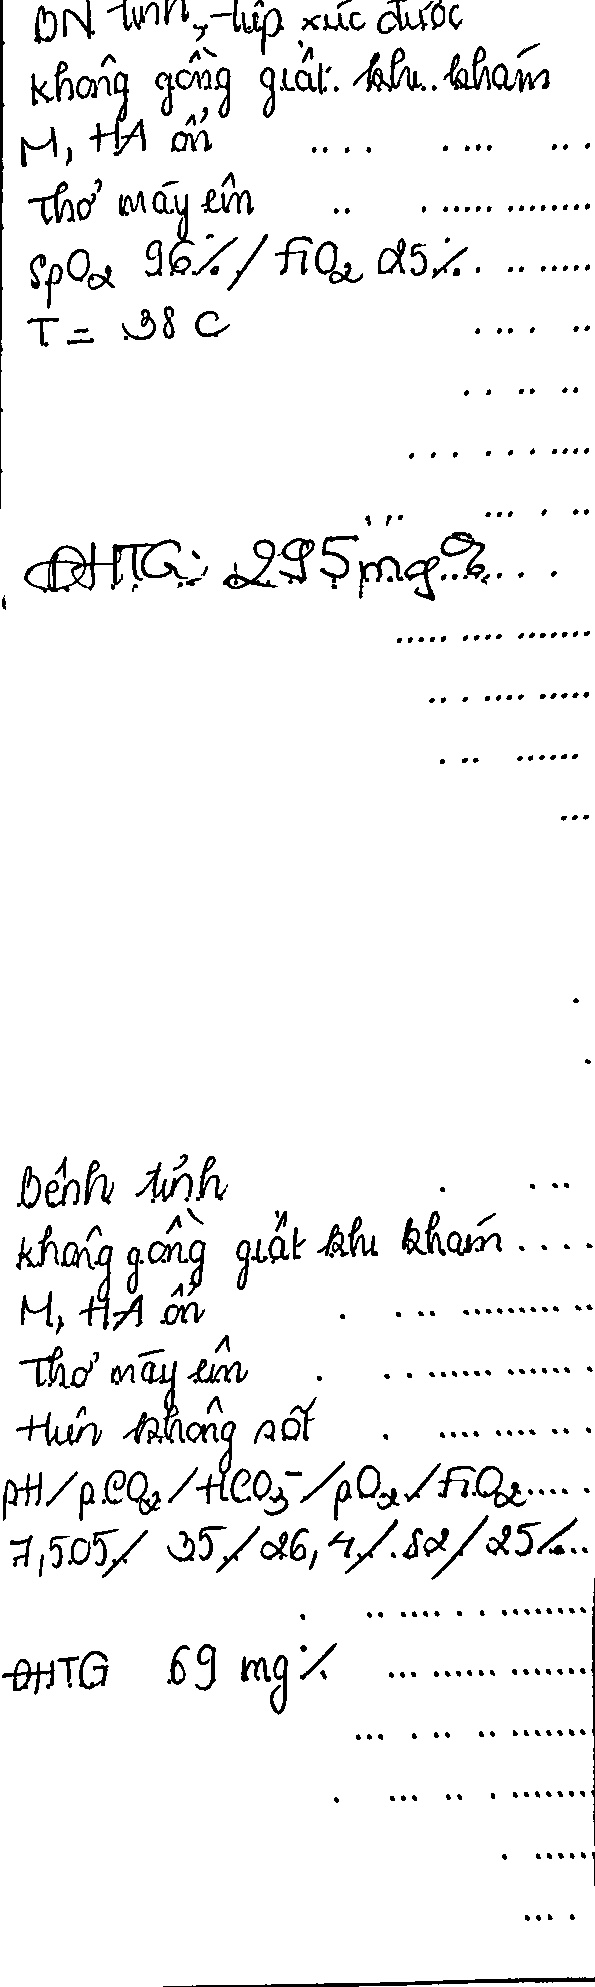 BN tỉnh, tiếp xúc được
không gồng giật khi khám
M, HA ổn
Thở máy êm
SpO2 96% / FiO2 25%
T = 38 C
ĐHTG: 295 mg%
Bệnh tỉnh
không gồng giật khi khám
M, HA ổn
Thở máy êm
Hiện không sốt
pH/pCO2/HCO3-/pO2/FiO2
7,505/ 35/26,4/82/25%
ĐHTG 69 mg%